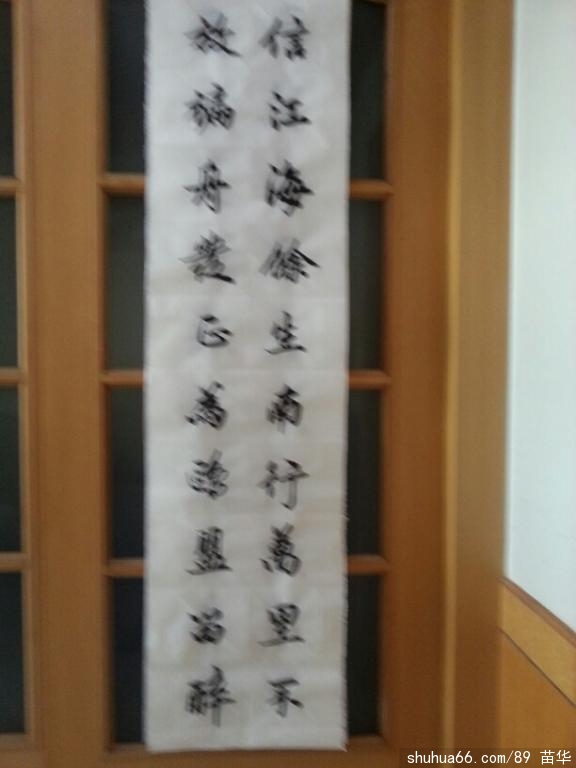 信江海餘生南行萬里不
放舟發正為鷗盟留醉
shuhua66.com/89 苗华